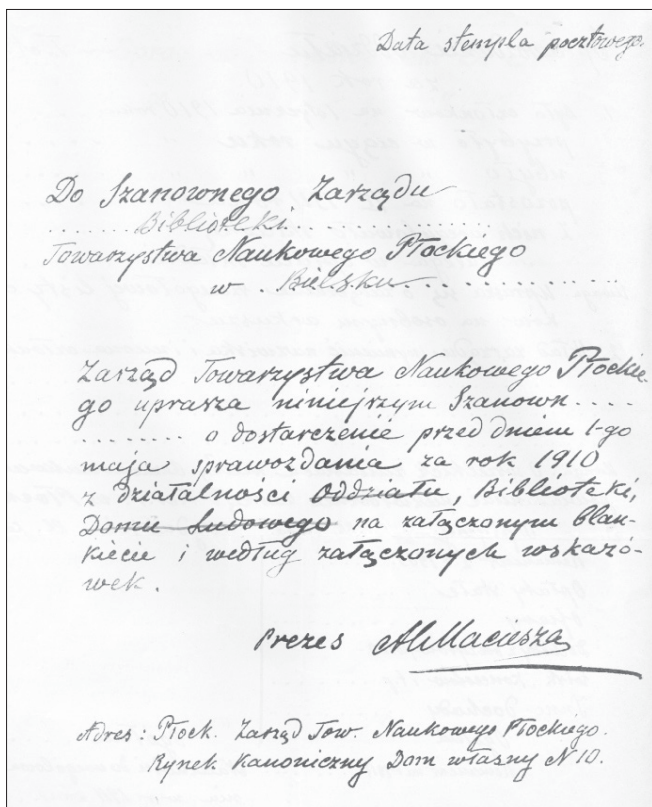 Data stempla pocztowego.
Do Szanownego Zarządu
........Biblioteki..............
Towarzystwa Naukowego Płockiego
w . Bielsku...................
Zarząd Towarzystwa Naukowego Płockie-
go uprasza niniejszym Szanown.....
.......... o dostarczenie przed dniem 1-go
maja sprawozdania za rok 1910
z działalności Oddziału, Biblioteki,
Domu Ludowego na załączonym blan-
kiecie i według załączonych wskazó-
wek.
Prezes AlMaciesza
Adres: Płock. Zarząd Tow. Naukowego Płockiego.
Rynek Kanoniczny Dom własny N 10.